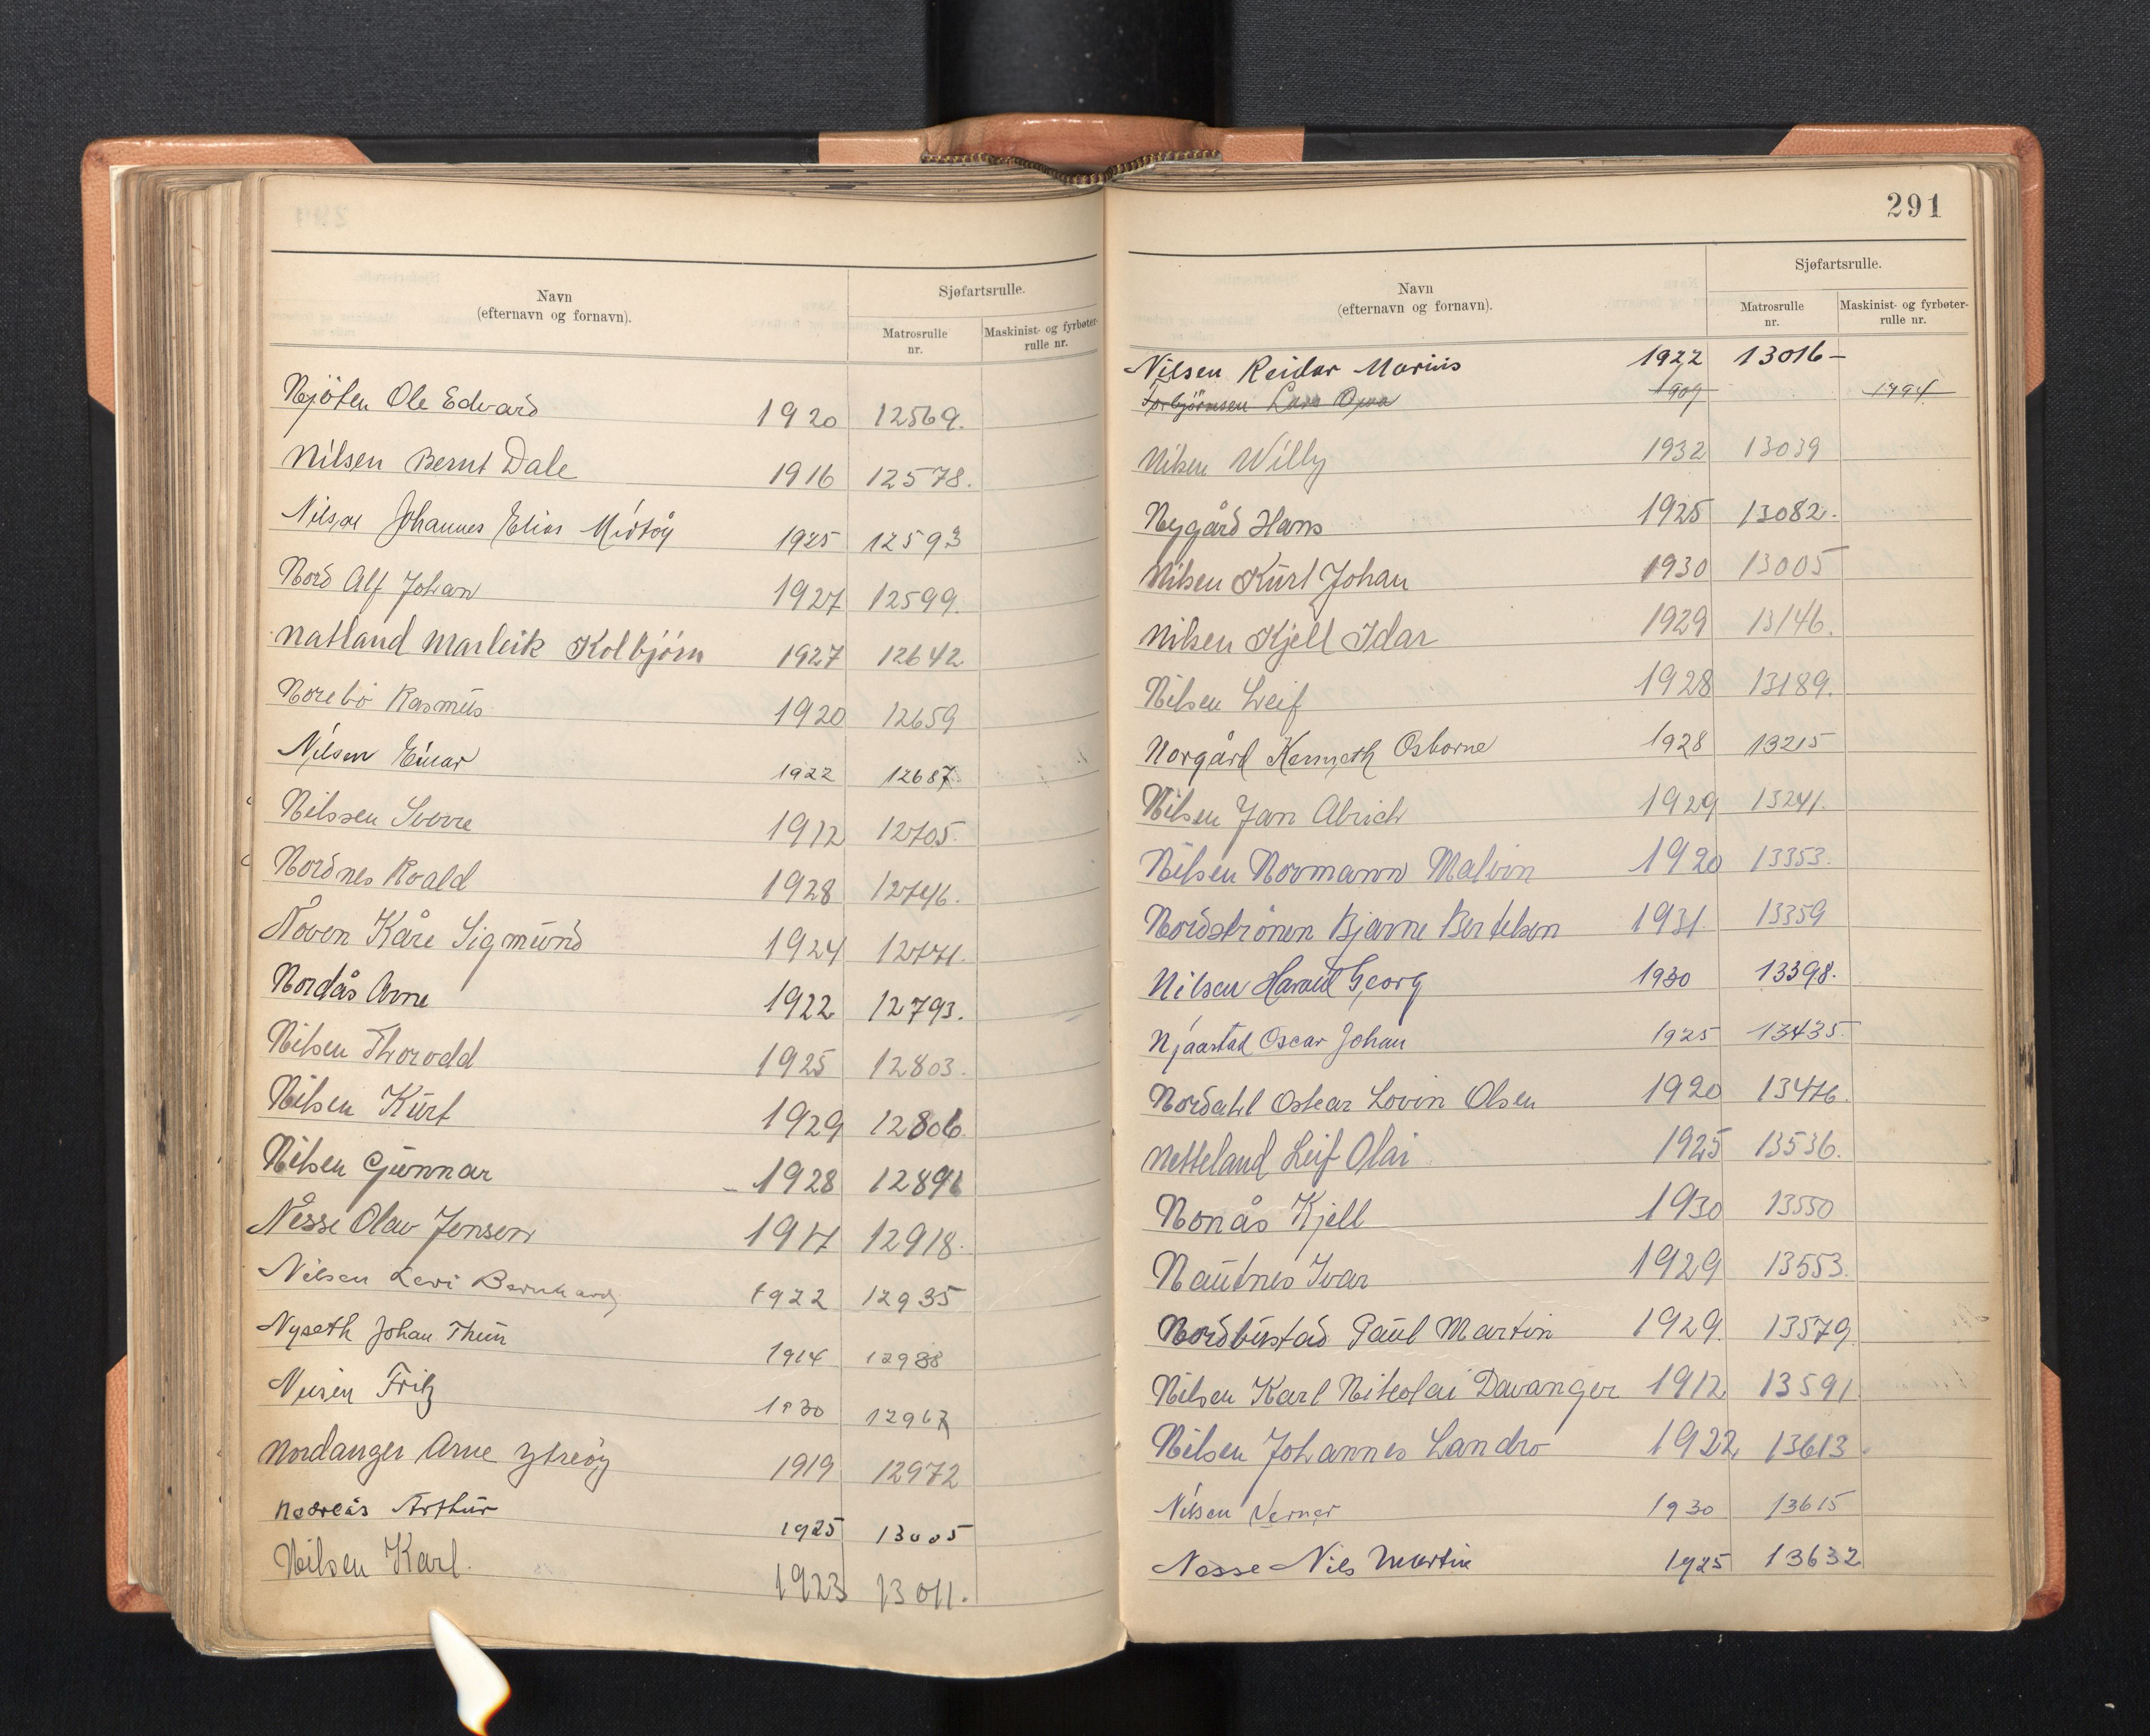 Navn
(efternavn og fornavn).
Sjøfartsrulle.
Matrosrulle
nr.
Maskinist- og fyrbøter-
rulle nr.
Njöten Ole Edvard 1920 12569.
Nilsen Bernt Dale 1916 12578.
Nilsen Johannes Elias Midtöy 1925 12593
Nord Alf Johan 1927 12599.
Natland Marleik Kolbjörn 1927 12642
Norebö Rasmus 1920 12659
Nilsen Einar 1922 12687.
Nilssen Sverre 1912 12705.
Nordnes Roald 1928 12746.
Noven Kåre Sigmund 1924 12771.
Nordås Arne 1922 12793.
Nilsen Thorodd 1925 12803.
Nilsen Kurt 1929 12806.
Nilsen Gunnar 1928
Nesse Olav Jensen 12918.
Nilsen Levi Bernhard 1922 12935
Nyseth Johan Thun 1914 12938
Fritz 1930 12967
Nordanger Arne Ytreöy 1919 12972
Nedreås Arthur 1925 13005
Nilsen Karl. 1923 13011.
291
Navn
(efternavn og fornavn).
Sjøfartsrulle.
Matrosrulle
nr.
Maskinist- og fyrbøter-
rulle nr.
Nilsen Reidar Marius 1922 13016-
Torbjörnsen Lars 1909 1794
Nilsen Willy 1932 13039
Nygård Hans 1925 13082.
Nilsen Kurt Johan 1930 13005
Nilsen Kjell Idar 1929 13146.
Nilsen Leif 1928 13189.
Norgård Kenneth Osborne 1928 13215
Nilsen Jan Alrich 1929 13241.
Nilsen Normann Malvin 1920 13353.
Nordströnen Bjarne Bertelsen 1931. 13359
Nilsen Harald Georg 1930 13398.
Njaastad Oscar Johan 1925 13435.
Nordahl Oskar Lovin Olsen 1920 13476.
Netteland Leif Olai 1925 13536.
Nonås Kjell 1930 13550
Nautnes Ivar 1929 13553.
Nordbustad Paul Martin 1929. 13579.
Nilsen Karl Nikolai Davanger 1912 13591.
Nilsen Johannes Landro 1922 13613.
Nilsen Verner 1930 13615
Nesse Nils Martin 1925 13632